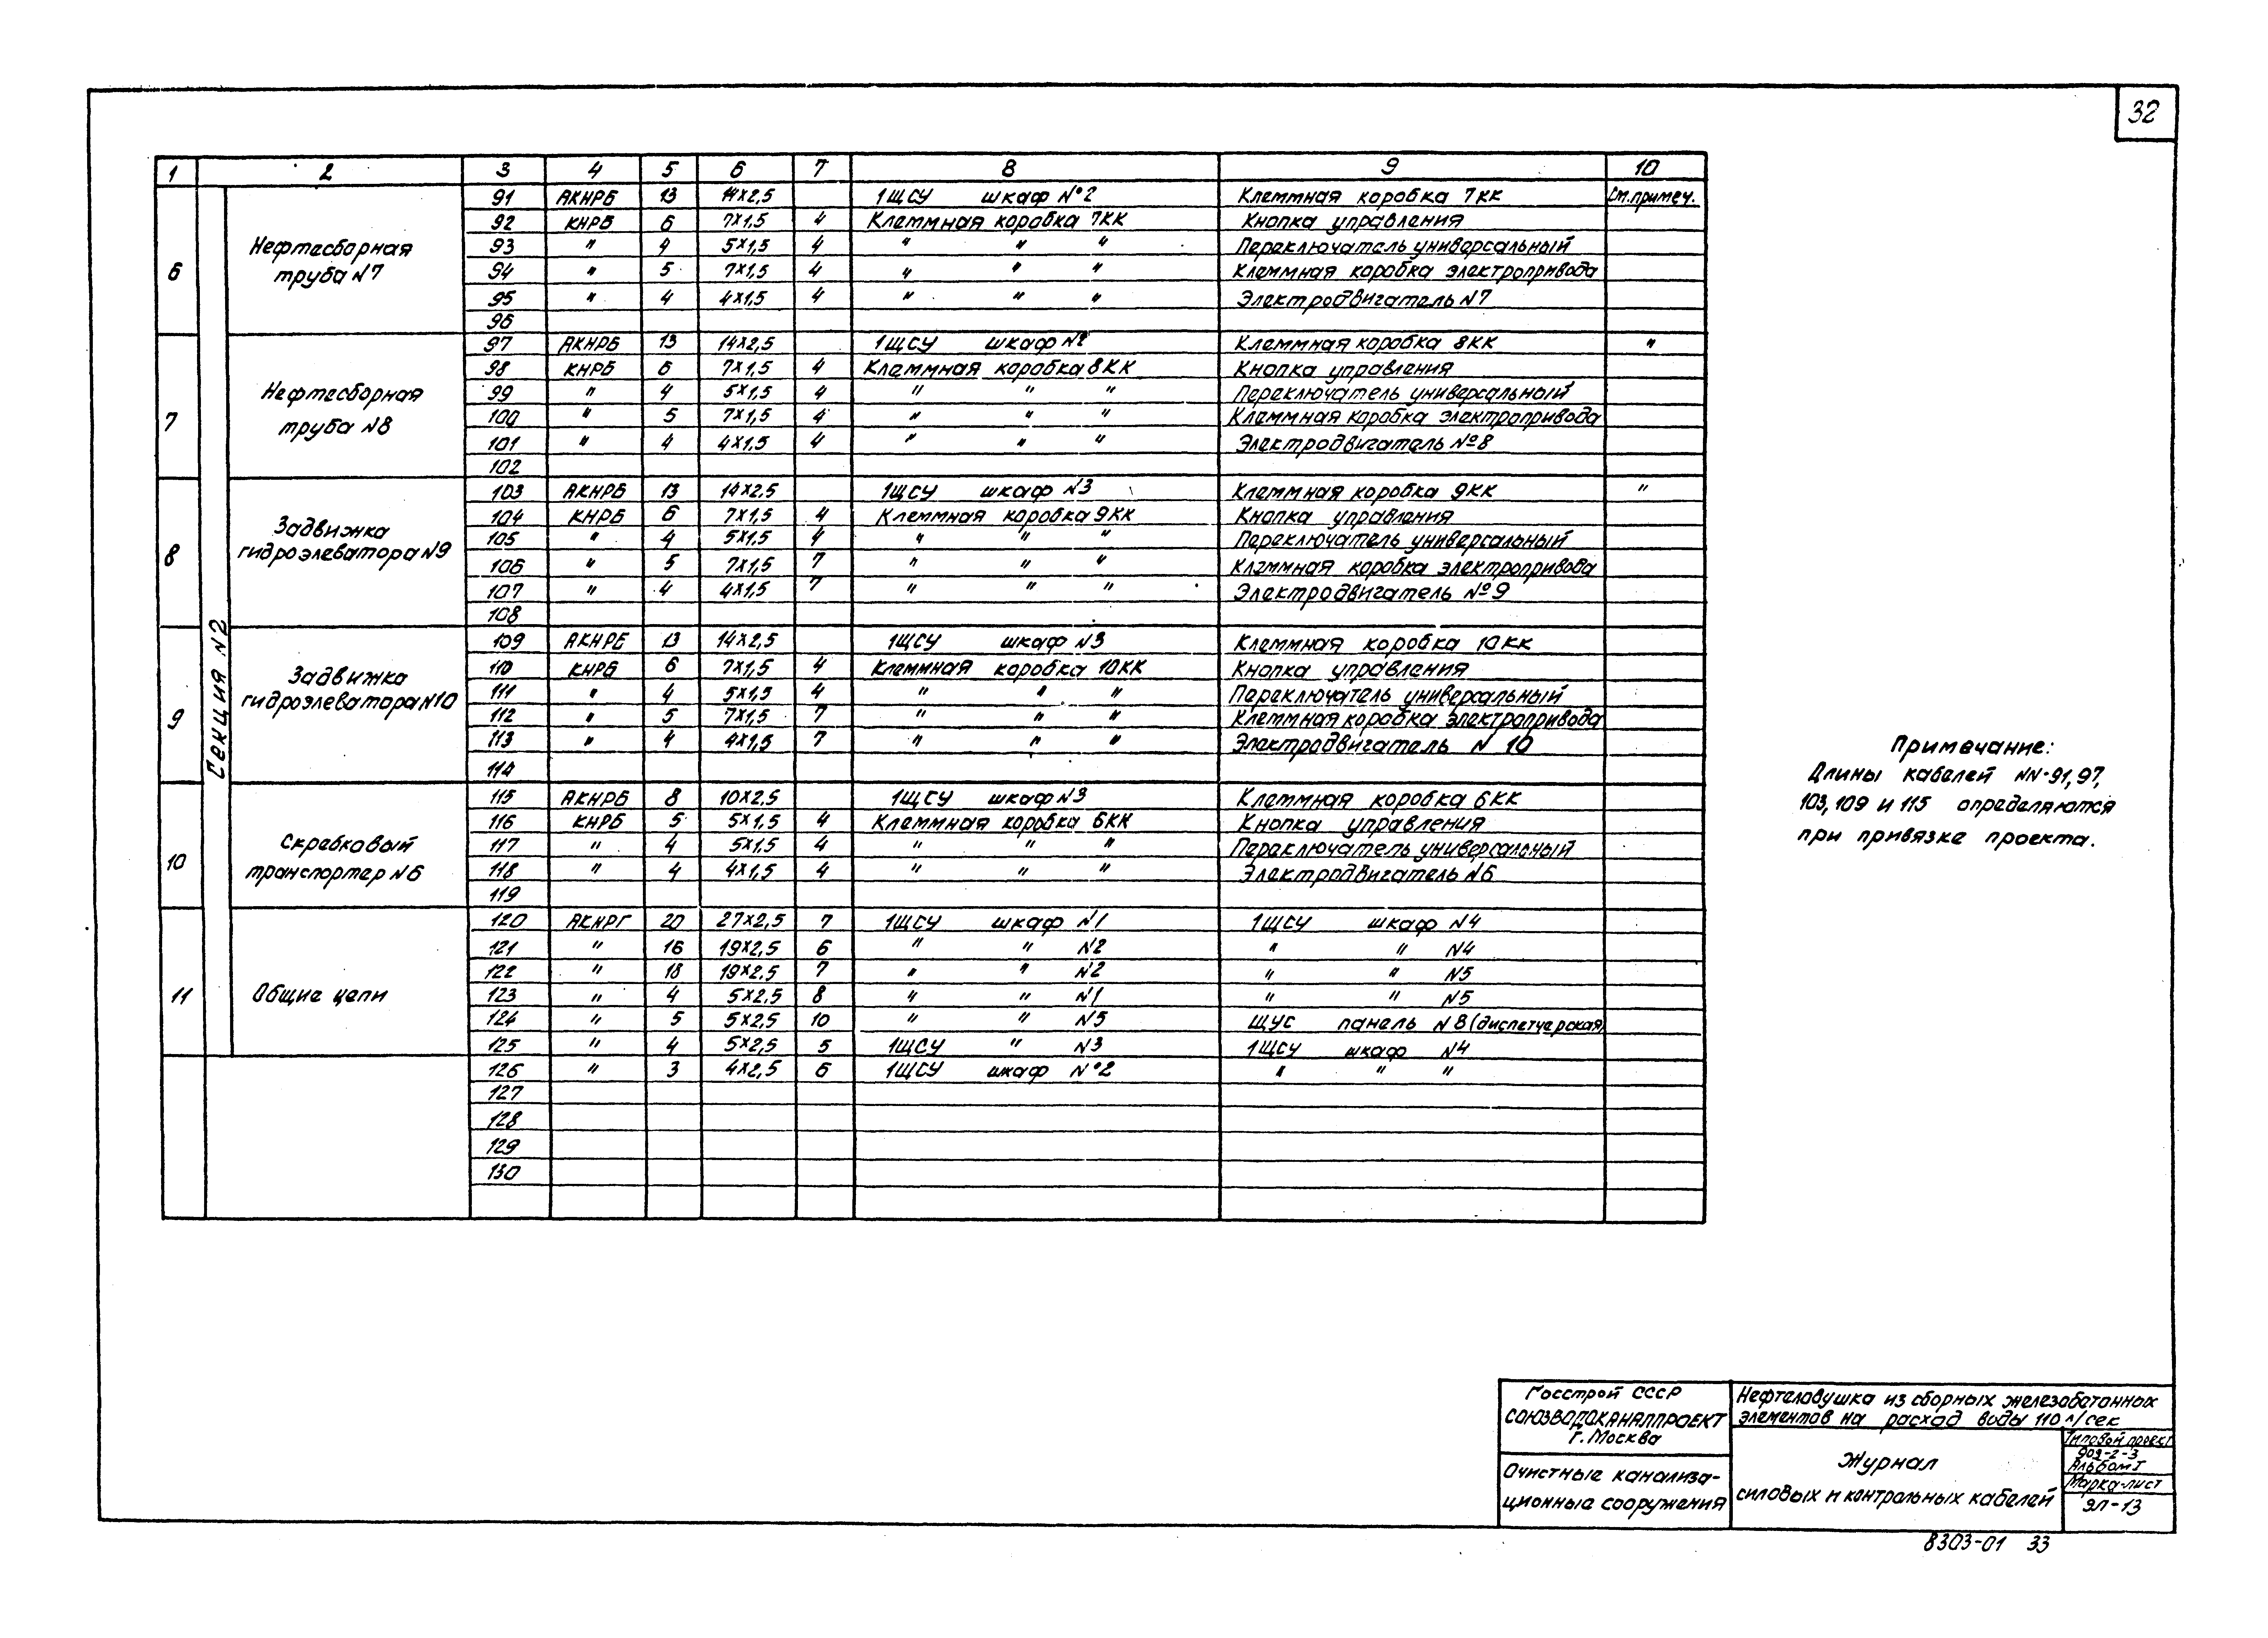 32
1 2 3 4 5 6 7 8 9 10
Секция N2
6 Нефтесборная труба N7
91 АКНРБ 13 14х2,5 1ЩСУ шкаф №2 Клеммная коробка 7КК См. примеч.
92 КНРБ 6 7х1,5 4 Клеммная коробка 7КК Кнопка управления
93 " 4 5х1,5 4 " " " Переключатель универсальный
94 " 5 7х1,5 4 " " " Клеммная коробка электропривода
95 " 4 4х1,5 4 " " " Электродвигатель N7
96
7 Нефтесборная труба N8
97 АКНРБ 13 14х2,5 1ЩСУ шкаф N2 Клеммная коробка 8КК "
98 КНРБ 6 7х1,5 4 Клеммная коробка 8КК Кнопка управления
99 " 4 5х1,5 4 " " " Переключатель универсальный
100 " 5 7х1,5 4 " " " Клеммная коробка электропривода
101 " 4 4х1,5 4 " " " Электродвигатель №8
102
8 Задвижка гидроэлеватора N9
103 АКНРБ 13 14х2,5 1ЩСУ шкаф N3 Клеммная коробка 9КК "
104 КНРБ 6 7х1,5 4 Клеммная коробка 9КК Кнопка управления
105 " 4 5х1,5 4 " " " Переключатель универсальный
106 " 5 7х1,5 7 " " " Клеммная коробка электропривода
107 " 4 4х1,5 7 " " " Электродвигатель №9
108
9 Задвижка гидроэлеватора N10
109 АКНРБ 13 14х2,5 1ЩСУ шкаф N3 Клеммная коробка 10КК
110 КНРБ 6 7х1,5 4 Клеммная коробка 10КК Кнопка управления
111 " 4 5х1,5 4 " " " Переключатель универсальный
112 " 5 7х1,5 7 " " " Клеммная коробка электропривода
113 " 4 4х1,5 7 " " " Электродвигатель N 10
114
10 Скребковый транспортер N6
115 АКНРБ 8 10х2,5 1ЩСУ шкаф N3 Клеммная коробка 6КК
116 КНРБ 5 5х1,5 4 Клеммная коробка 6КК Кнопка управления
117 " 4 5х1,5 4 " " " Переключатель универсальный
118 " 4 4х1,5 4 " " " Электродвигатель N6
119
11 Общие цепи
120 АКНРГ 20 27х2,5 7 1ЩСУ шкаф N1 1ЩСУ шкаф N4
121 " 16 19х2,5 6 " " N2 " " N4
122 " 18 19х2,5 7 " " N2 " " N5
123 " 4 5х2,5 8 " " N1 " " N5
124 " 5 5х2,5 10 " " N5 ЩУС панель N8 (диспетчерская)
125 " 4 5х2,5 5 1ЩСУ " N3 1ЩСУ шкаф N4
126 " 3 4х2,5 6 1ЩСУ шкаф №2 " " "
127
128
129
130
Примечание:
Длины кабелей NN-91,97,
103,109 и 115 определяются
при привязке проекта.
Госстрой СССР
СОЮЗВОДОКАНАЛПРОЕКТ
г. Москва
Очистные канализа-
ционные сооружения
Нефтеловушка из сборных железобетонных
элементов на расход воды 110 л/сек
Журнал
силовых и контрольных кабелей
Типовой проект
902-2-3
Альбом I
Марка-лист
ЭЛ-13
8303-01 33